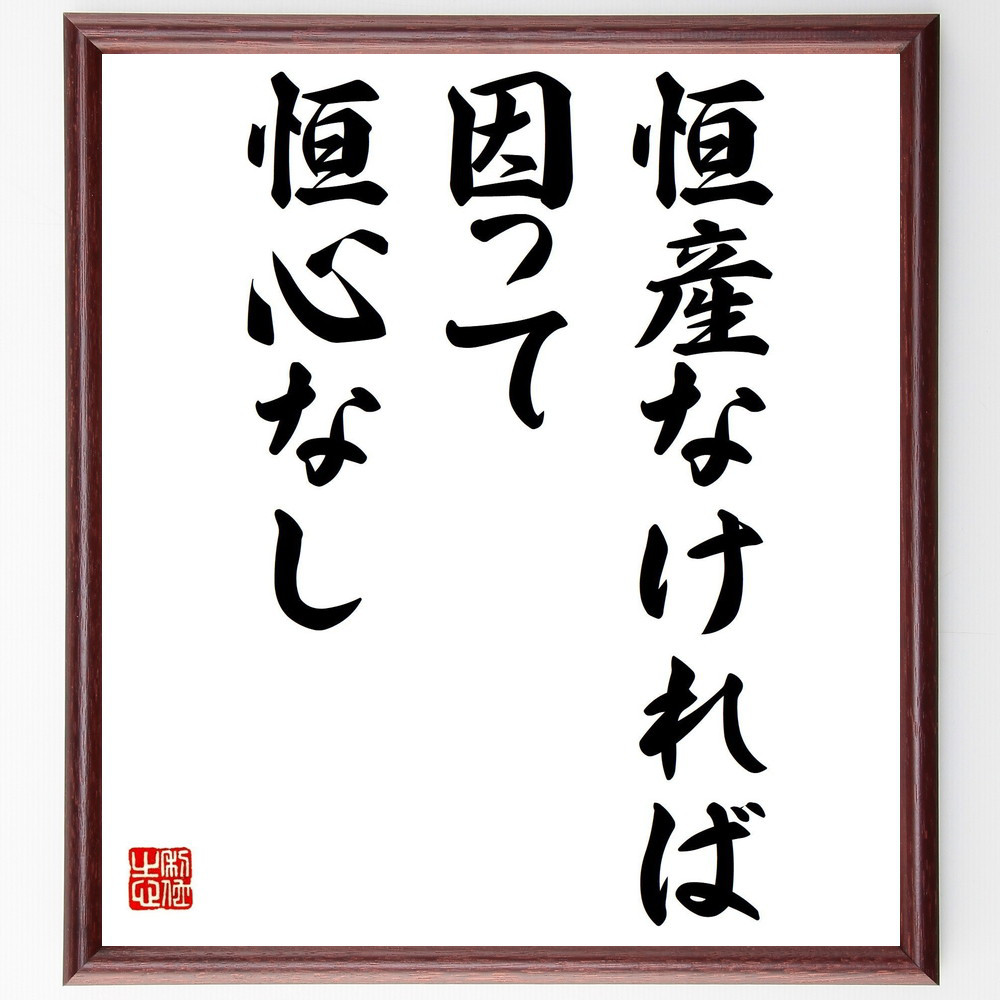 恒産なければ
因って
恒心なし